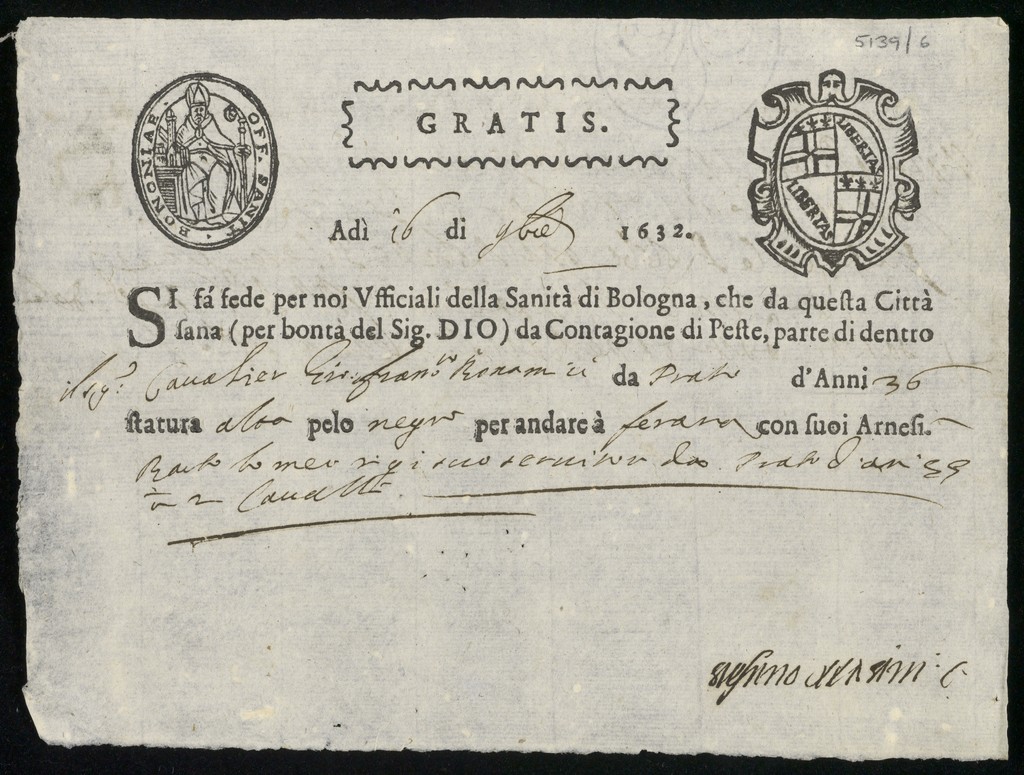 5139/6
BONONIAE OFF. SANIT.
GRATIS.
LIBERTAS
LIBERTAS
Adì 16 di 9bre 1632.
SI fá fede per noi Vfficiali della Sanità di Bologna, che da queſta Città
ſana (per bontà del Sig. DIO) da Contagione di Peſte, parte di dentro
il sig.r Cavalier Gio: fran.co Bonamici da Prato d'Anni 36
ſtatura alta pelo negro per andare à ferara con ſuoi Arneſi.
Bartolomeo suo servitor da Prato d'an
2 Cavalli